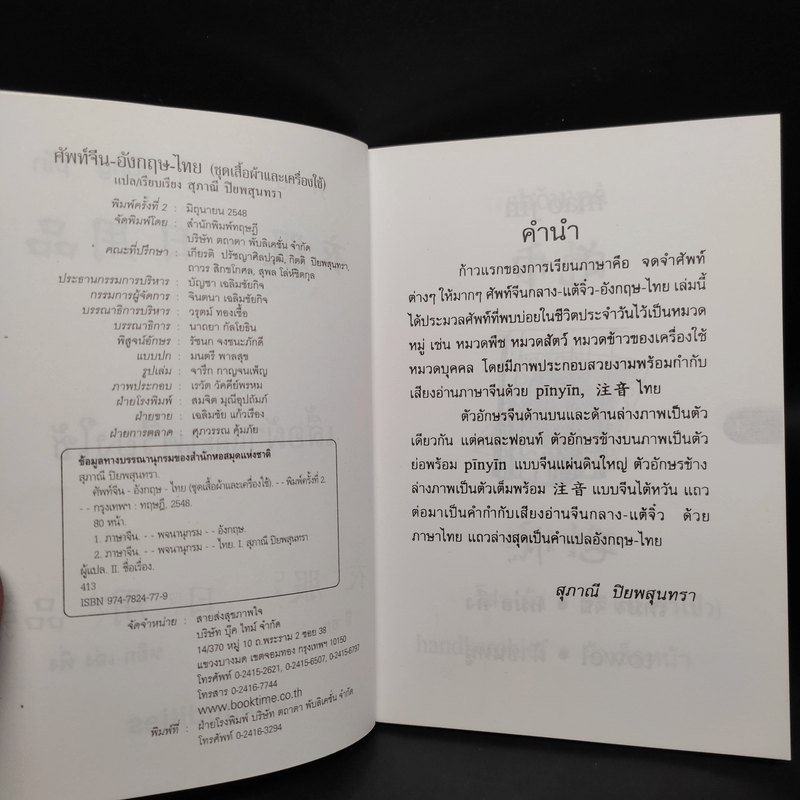 ศัพท์จีน-อังกฤษ-ไทย (ชุดเสื้อผ้าและเครื่องใช้)
แปล/เรียบเรียง สุภาณี ปิยพสุนทรา
พิมพ์ครั้งที่ 2 : มิถุนายน 2548
จัดพิมพ์โดย : สำนักพิมพ์ทฤษฎี
บริษัท ตถาตา พับลิเคชั่น จำกัด
คณะที่ปรึกษา : เกียรติ ปรัชญาศิลปวุฒิ, กิตติ ปิยพสุนทรา,
ถาวร สิกขโกศล, สุพล โล่ห์ชิตกุล
ประธานกรรมการบริหาร : บัญชา เฉลิมชัยกิจ
กรรมการผู้จัดการ : จินตนา เฉลิมชัยกิจ
บรรณาธิการบริหาร : วรุตม์ ทองเชื้อ
บรรณาธิการ : นาถยา กัลโยธิน
พิสูจน์อักษร : รัชนก จงชนะภักดี
แบบปก : มนตรี พาลสุข
รูปเล่ม : จารึก กาญจนเพ็ญ
ภาพประกอบ : เรวัต วัคคีย์พรหม
ฝ่ายโรงพิมพ์ : สมจิต มุณีอุปถัมภ์
ฝ่ายขาย : เฉลิมชัย แก้วเรือง
ฝ่ายการตลาด : ศุภวรรณ คุ้มภัย
ข้อมูลทางบรรณานุกรมของสำนักหอสมุดแห่งชาติ
สุภาณี ปิยพสุนทรา.
ศัพท์จีน - อังกฤษ - ไทย (ชุดเสื้อผ้าและเครื่องใช้). - - พิมพ์ครั้งที่ 2.
- - กรุงเทพฯ : ทฤษฎี, 2548.
80 หน้า.
1. ภาษาจีน. - - พจนานุกรม - - อังกฤษ.
2. ภาษาจีน. - - พจนานุกรม - - ไทย. I. สุภาณี ปิยพสุนทรา
ผู้แปล. II. ชื่อเรื่อง.
413
ISBN 974-7824-77-9
จัดจำหน่าย : สายส่งสุขภาพใจ
บริษัท บุ๊ค ไทม์ จำกัด
14/370 หมู่ 10 ถ.พระราม 2 ซอย 38
แขวงบางมด เขตจอมทอง กรุงเทพฯ 10150
โทร. 0-2415-2621, 0-2415-6507, 0-2415-6797
โทรสาร 0-2416-7744
www.booktime.co.th
พิมพ์ที่ : ฝ่ายโรงพิมพ์ บริษัท ตถาตา พับลิเคชั่น จำกัด
โทรศัพท์ 0-2416-3294
คำนำ
ก้าวแรกของการเรียนภาษาคือ จดจำศัพท์
ต่างๆ ให้มากๆ ศัพท์จีนกลาง-แต้จิ๋ว-อังกฤษ-ไทย เล่มนี้
ได้ประมวลศัพท์ที่พบบ่อยในชีวิตประจำวันไว้เป็นหมวด
หมู่ เช่น หมวดพืช หมวดสัตว์ หมวดข้าวของเครื่องใช้
หมวดบุคคล โดยมีภาพประกอบสวยงามพร้อมกำกับ
เสียงอ่านภาษาจีนด้วย pīnyīn, 注音 ไทย
ตัวอักษรจีนด้านบนและด้านล่างภาพเป็นตัว
เดียวกัน แต่คนละฟอนท์ ตัวอักษรข้างบนภาพเป็นตัว
ย่อพร้อม pīnyīn แบบจีนแผ่นดินใหญ่ ตัวอักษรข้าง
ล่างภาพเป็นตัวเต็มพร้อม 注音 แบบจีนไต้หวัน แถว
ต่อมาเป็นคำกำกับเสียงอ่านจีนกลาง-แต้จิ๋ว ด้วย
ภาษาไทย แถวล่างสุดเป็นคำแปลอังกฤษ-ไทย
สุภาณี ปิยพสุนทรา